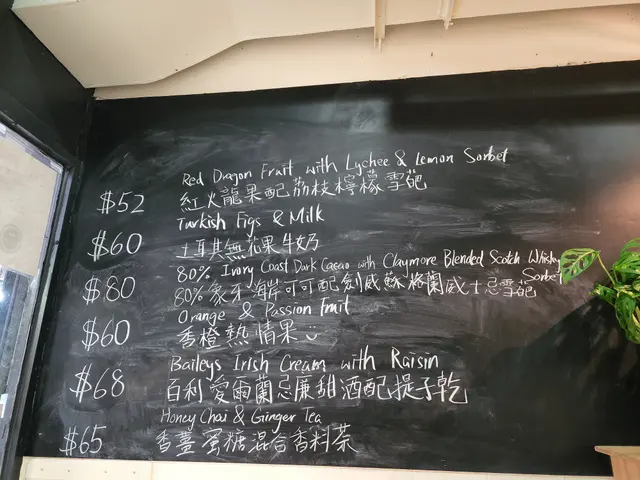 Red Dragon Fruit with Lychee & Lemon Sorbet
$52 紅火龍果配荔枝檸檬雪葩
Turkish Figs & Milk
$60 土耳其無花果牛奶
80% Ivory Coast Dark Cacao with Claymore Blended Scotch Whisky
Sorbet
$80 80%象牙海岸可可配劍威蘇格蘭威士忌雪葩
Orange & Passion Fruit
$60 香橙熱情果
Baileys Irish Cream with Raisin
$68 百利愛爾蘭忌廉甜酒配提子乾
Honey Chai & Ginger Tea
$65 香薑蜜糖混合香料茶